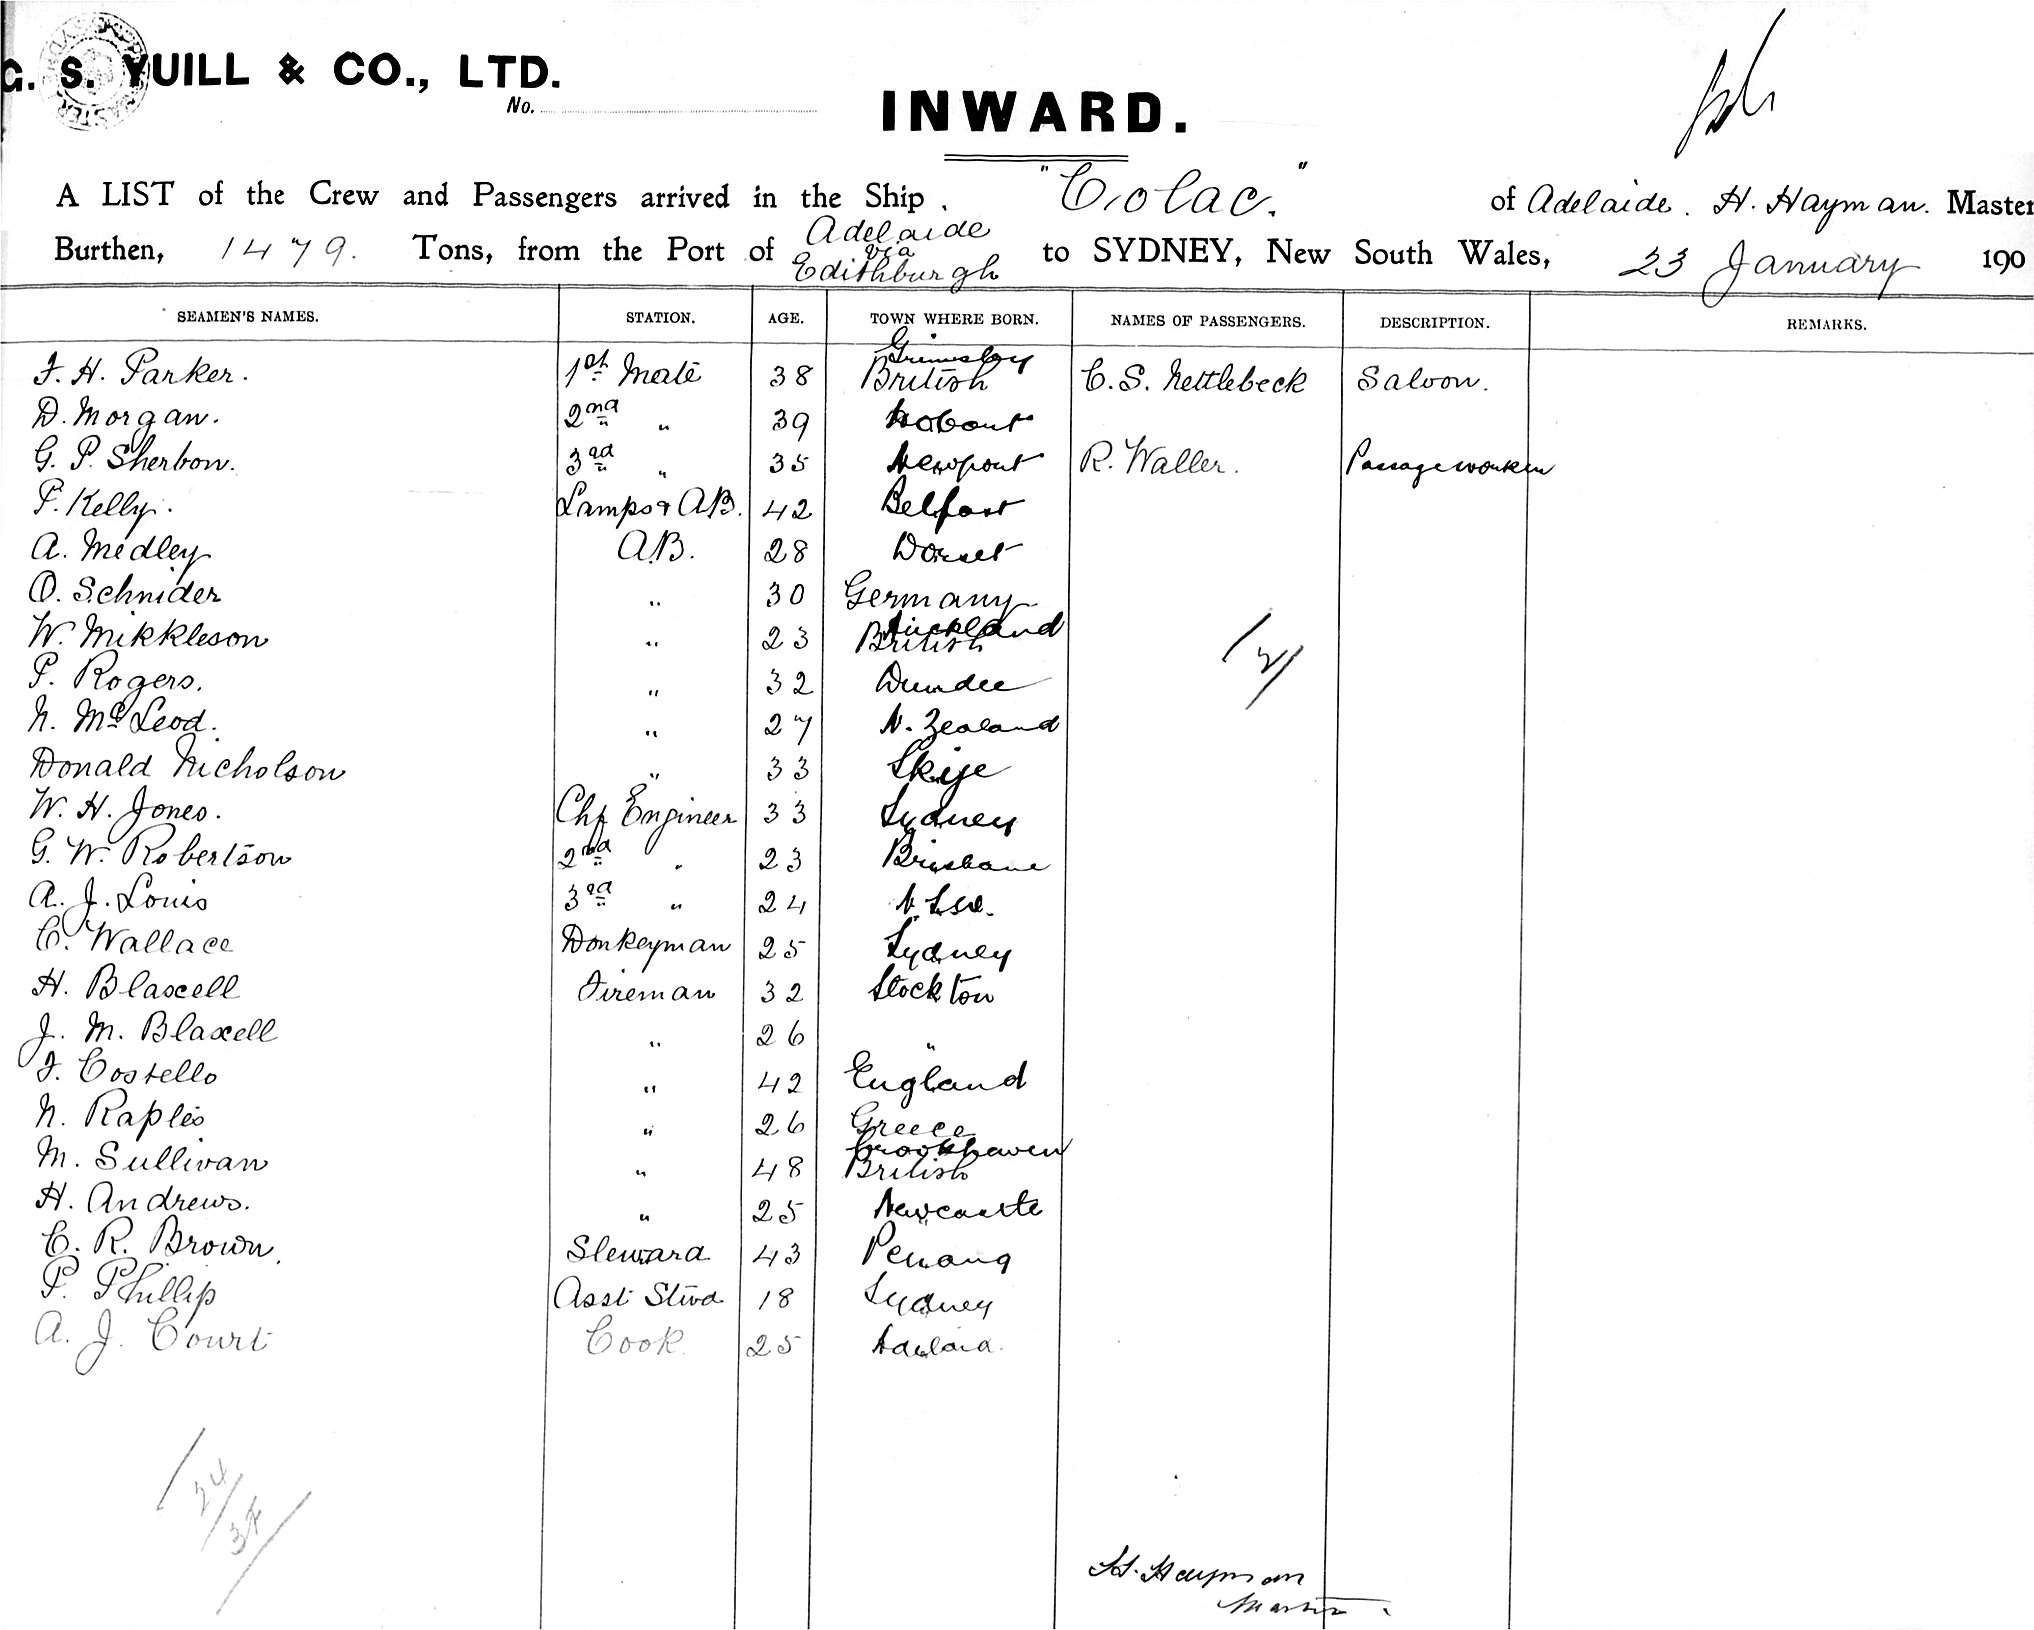 G. S. YUILL & CO., LTD.
No.
INWARD.
A LIST of the Crew and Passengers arrived in the Ship "Colac." of Adelaide. H. Hayman. Master
Burthen, 1479. Tons, from the Port of Adelaide via Edithburgh to SYDNEY, New South Wales, 23 January 190
SEAMEN'S NAMES. STATION. AGE. TOWN WHERE BORN. NAMES OF PASSENGERS. DESCRIPTION. REMARKS.
Grimsby
F. H. Parker. 1st Mate 38 British C. S. Nettlebeck Saloon.
D. Morgan. 2nd " 39 Hobart
G. P. Sherbon. 3rd " 35 Newport R. Waller. Passageworker
P. Kelly. Lamps & AB. 42 Belfast
A. Medley A.B. 28 Dorset
O. Schnider " 30 Germany
Auckland
W. Mikkleson " 23 British
P. Rogers. " 32 Dundee
N. McLeod. " 27 N. Zealand
Donald Nicholson " 33 Skye
W. H. Jones. Chf Engineer 33 Sydney
G. W. Robertson 2nd " 23 Brisbane
A. J. Louis 3rd " 24 N.S.W.
C. Wallace Donkeyman 25 Sydney
H. Blaxell Fireman 32 Stockton
J. M. Blaxell " 26 "
F. Costello " 42 England
N. Raples " 26 Greece
Crookhaven
M. Sullivan " 48 British
H. Andrews. " 25 Newcastle
C. R. Brown. Steward 43 Penang
P. Phillip Asst Stwd 18 Sydney
A. J. Court Cook. 25 Adelaid.
/2/
24
H. Hayman
Master.